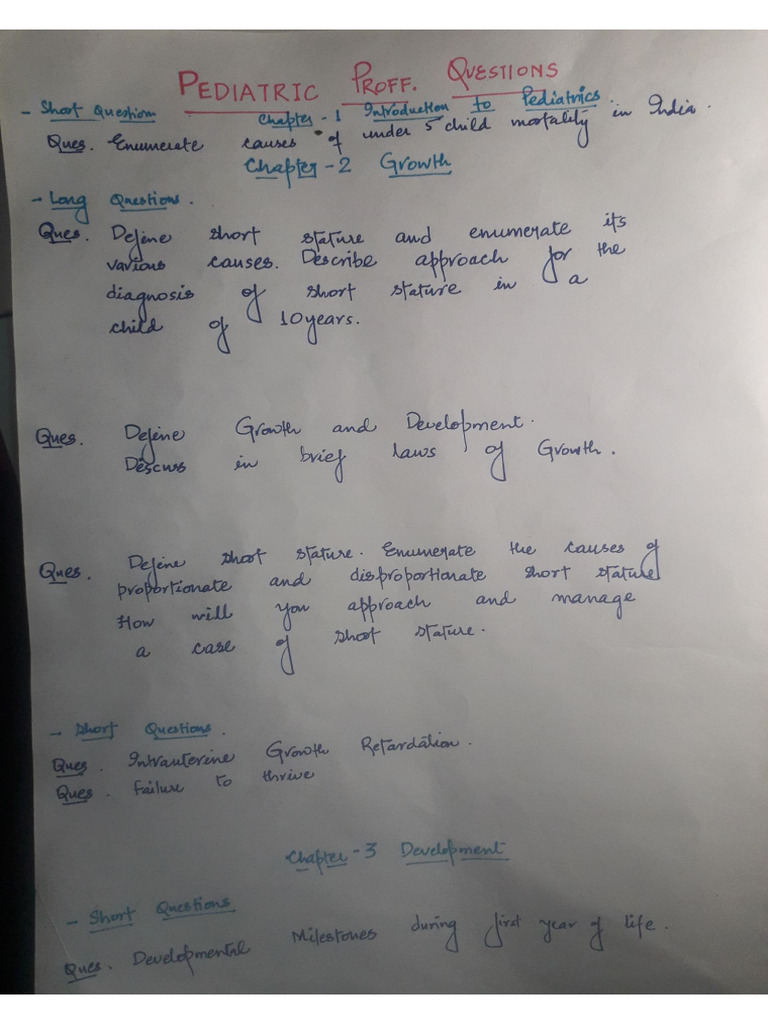 PEDIATRIC PROFF. QUESTIONS
- Short Question Chapter-1 Introduction to Pediatrics.
Ques. Enumerate causes of under 5 child mortality in India.
Chapter-2 Growth
- Long Questions.
Ques. Define short stature and enumerate its
various causes. Describe approach for the
diagnosis of short stature in a
child of 10years.
Ques. Define Growth and Development.
Discuss in brief laws of Growth.
Ques. Define short stature. Enumerate the causes of
proportionate and disproportionate short stature
How will you approach and manage
a case of short stature.
- Short Questions.
Ques. Intrauterine Growth Retardation.
Ques. Failure to thrive
Chapter-3 Development
- Short Questions
Ques. Developmental Milestones during first year of life.